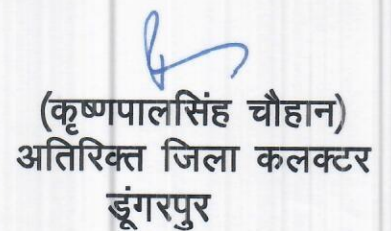 (कृष्णपालसिंह चौहान)
अतिरिक्त जिला कलक्टर
डूंगरपुर